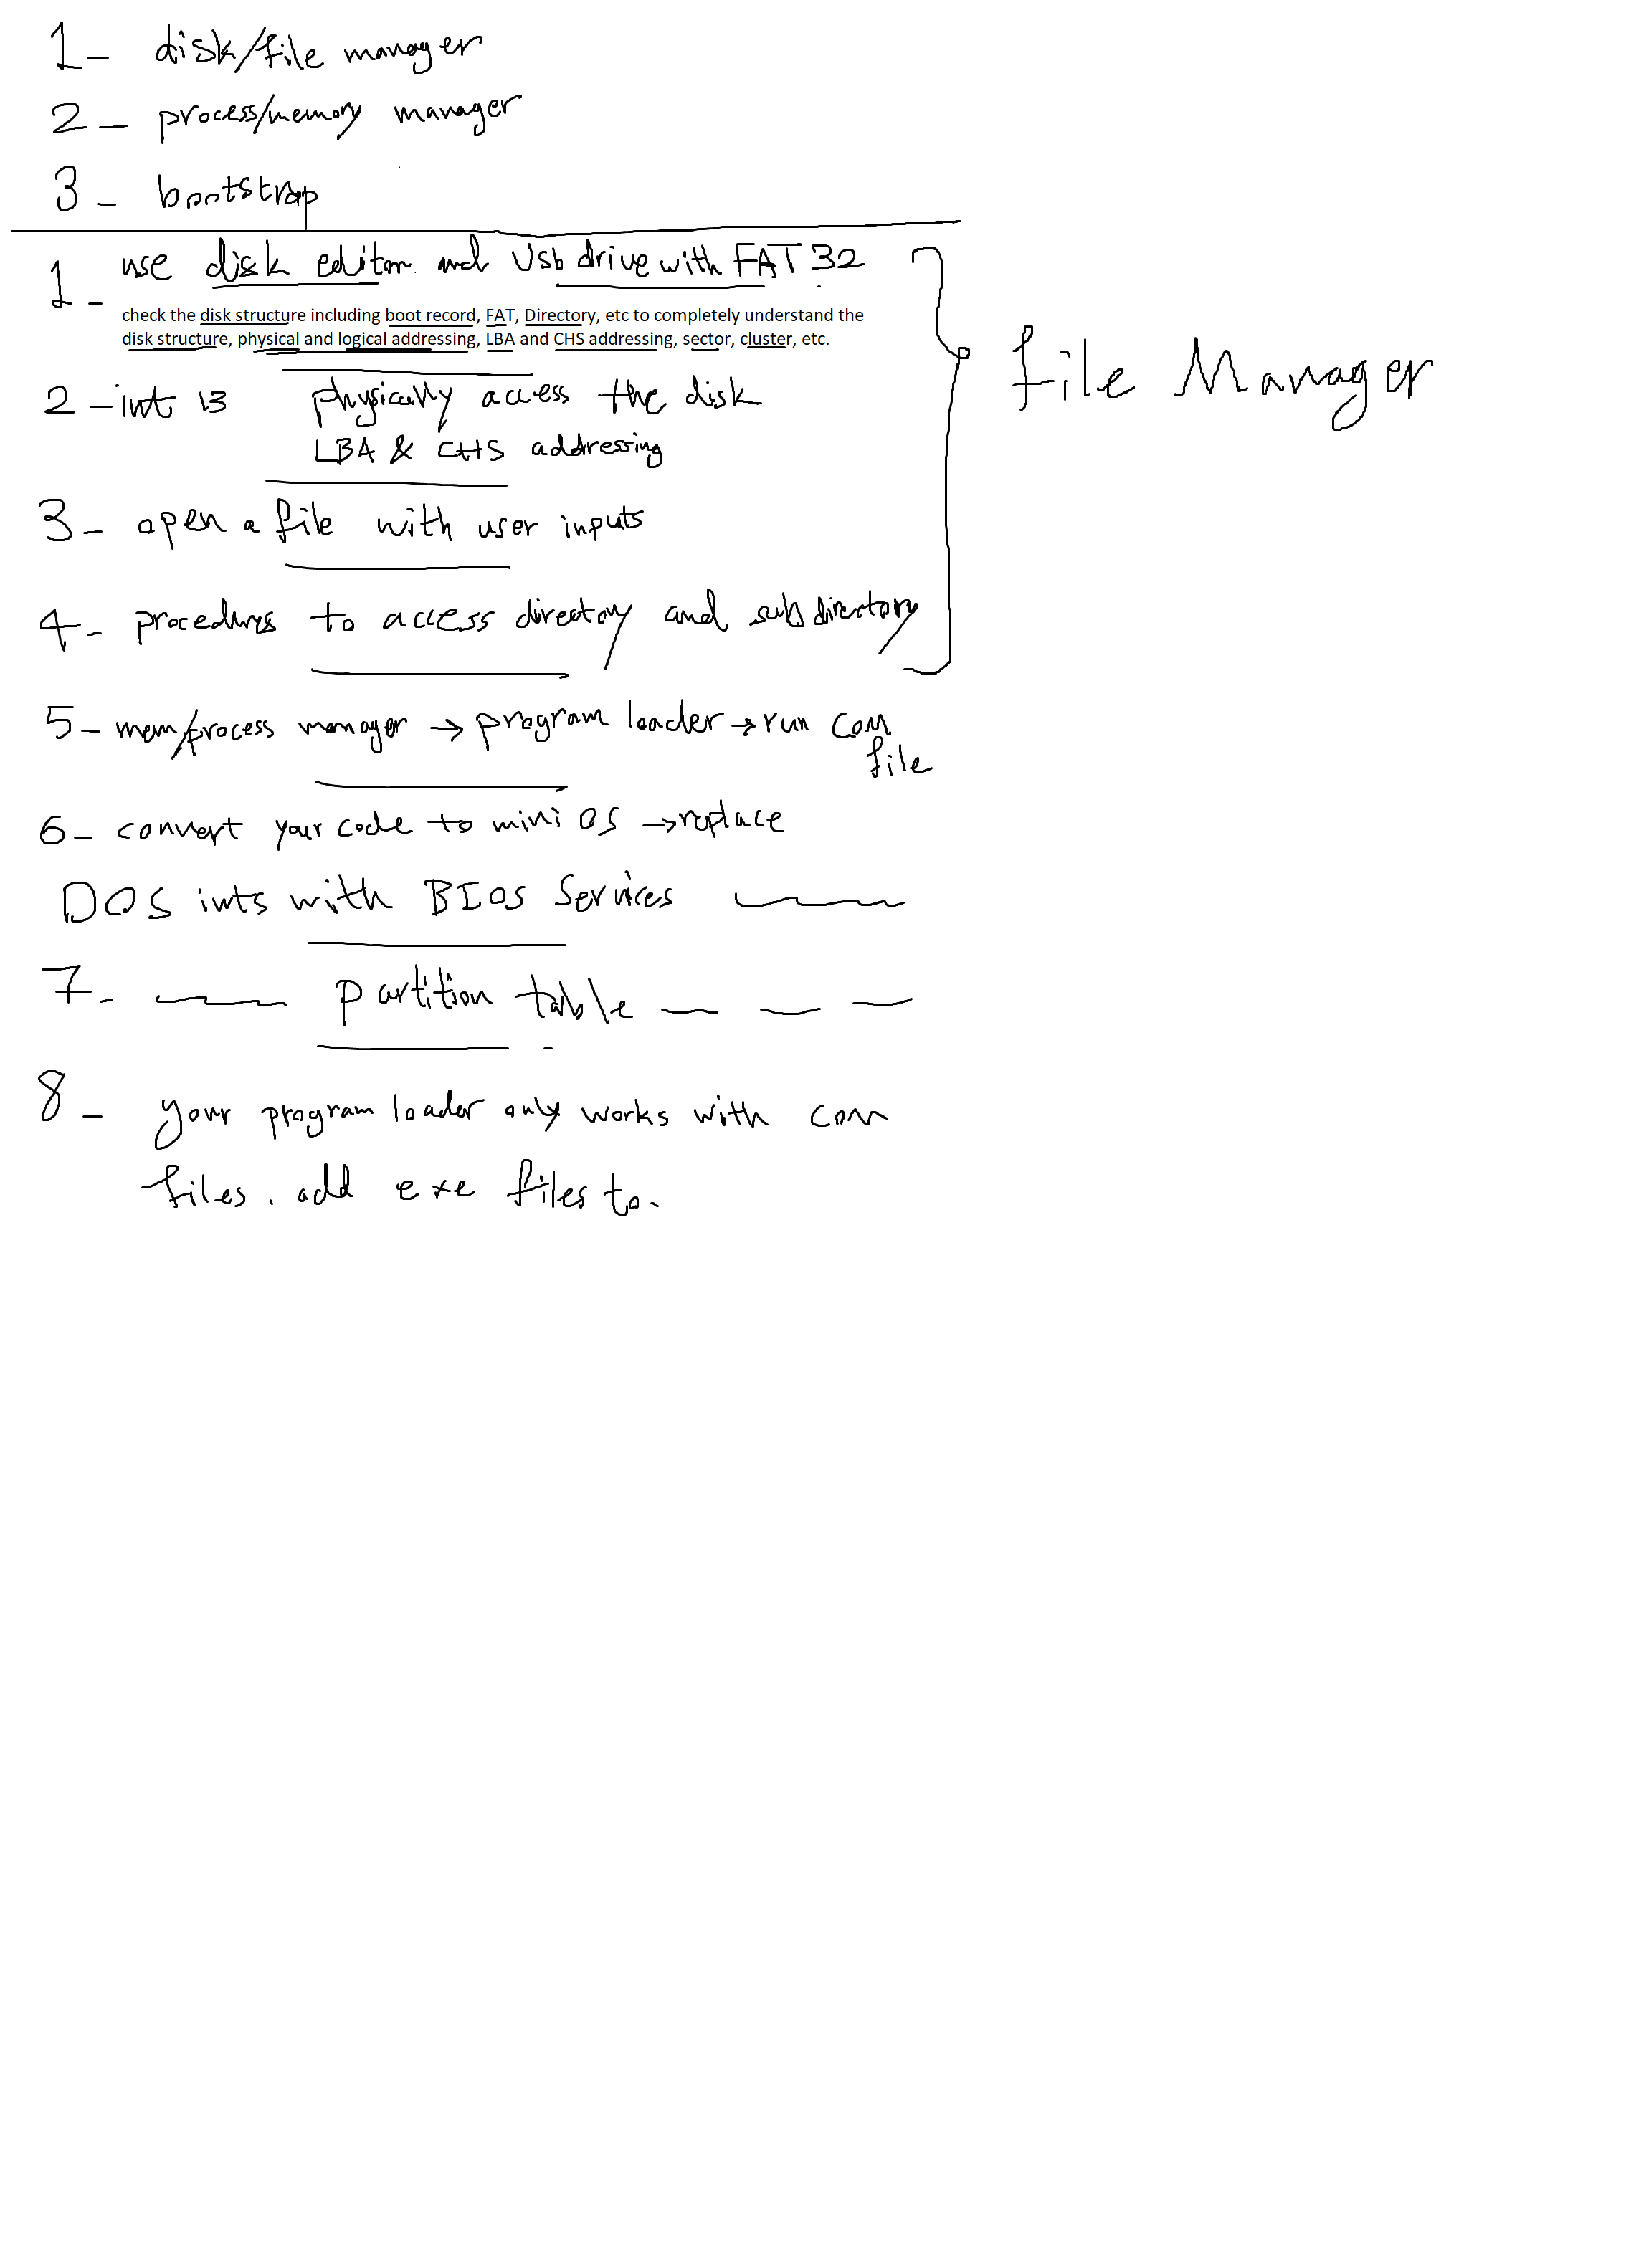 1- disk/file manager
2- process/memory manager
3- bootstrap
1- use disk editor and Usb drive with FAT 32
check the disk structure including boot record, FAT, Directory, etc to completely understand the
disk structure, physical and logical addressing, LBA and CHS addressing, sector, cluster, etc.
File Manager
2- int 13 physically access the disk
LBA & CHS addressing
3- open a file with user inputs
4- procedures to access directory and subdirectory
5- mem/process manager → program loader → run com
file
6- convert your code to mini OS → replace
DOS ints with BIOS Services
7- partition table
8- your program loader only works with com
files. add exe files to.